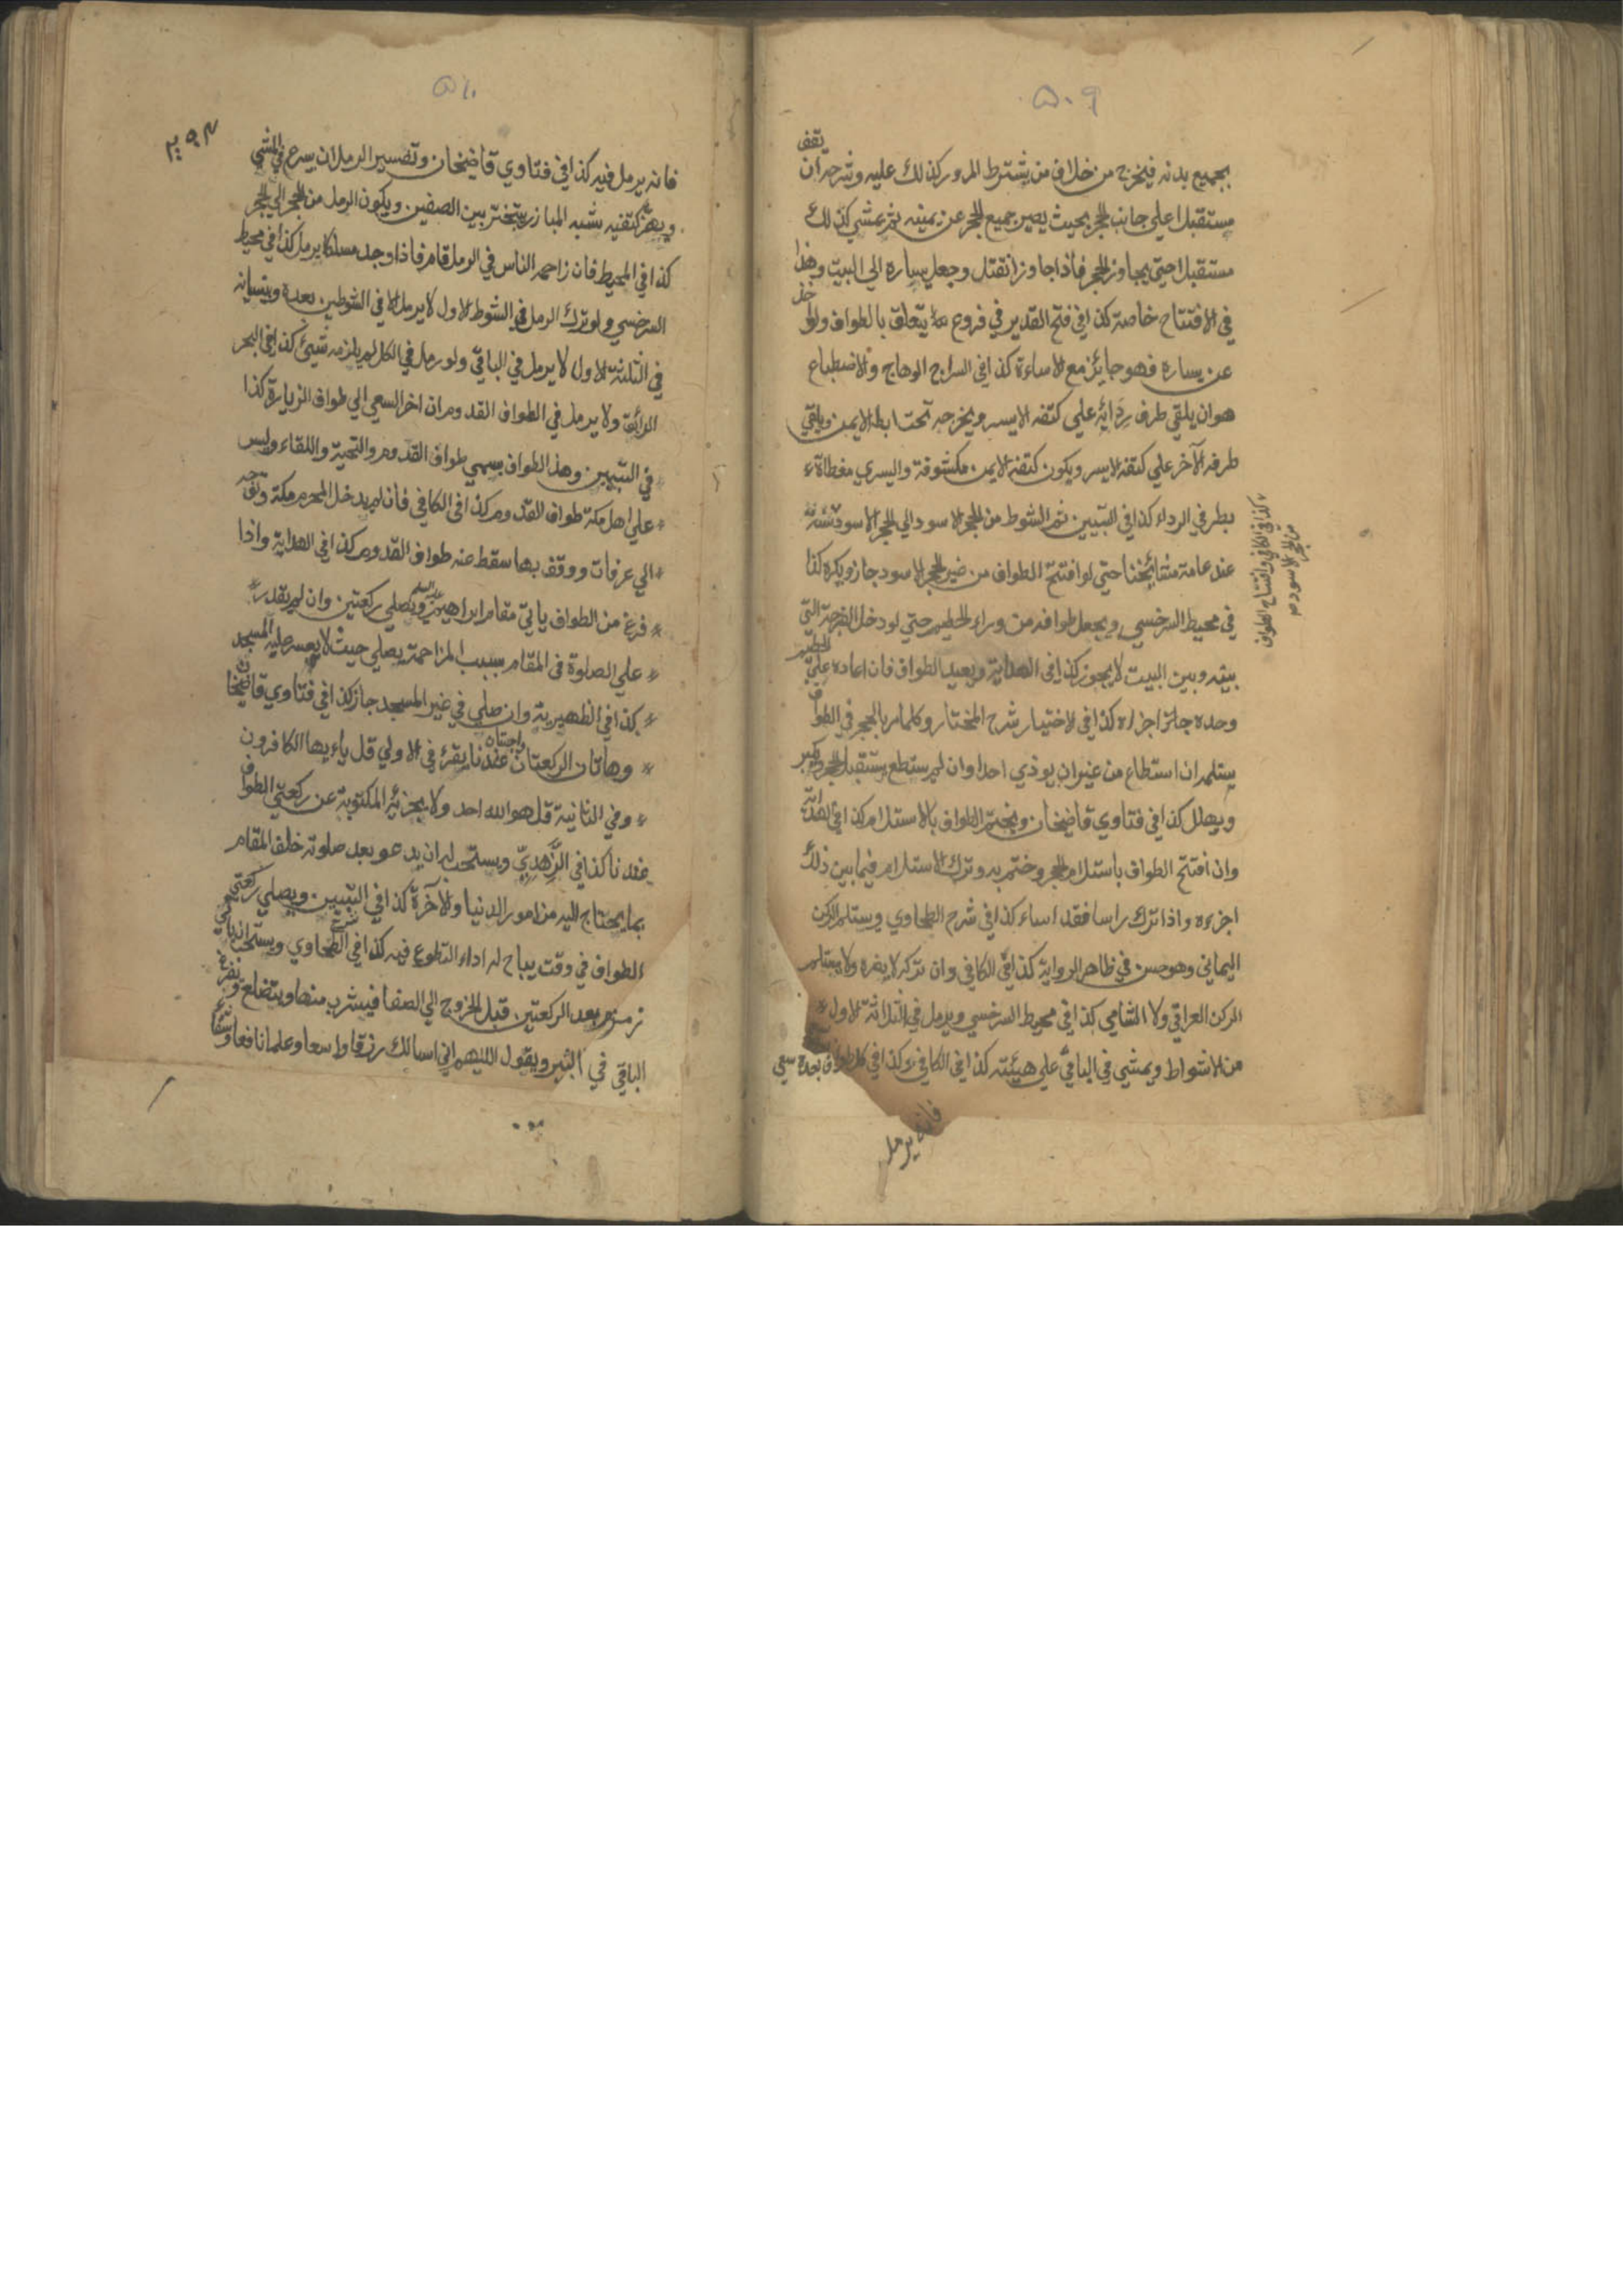 ٥٠٩
بجميع بدنه فيخرج من خلاف من يشترط المرور كذلك عليه وشرحه ان يقف
مستقبلا علي جانب الحجر بحيث يصير جميع الحجر عن يمينه ثم يمشي كذلك
مستقبلا حتي يجاوز الحجر فاذا جاوز انفتل وجعل يساره الي البيت وهذا
في الافتتاح خاصة كذا في فتح القدير في فروع يتعلق بالطواف ولو اخذ
عن يساره فهو جائز مع الاساءة كذا في السراج الوهاج والاضطباع
هو ان يلقي طرف ردائه علي كتفه الايسر ويخرجه تحت ابطه الايمن ويلقي
طرفه الآخر علي كتفه الايسر ويكون كتفه الايمن مكشوفة واليسري مغطاة
بطرفي الرداء كذا في التبيين ثم الشوط من الحجر الاسود الي الحجر الاسود
كذا في الكافي وافتتاح الطواف
من الحجر الاسود
عند عامة مشائخنا حتي لو افتتح الطواف من غير الحجر الاسود جاز ويكره كذا
في محيط السرخسي ويجعل طوافه من وراء الحطيم حتي لو دخل الفرجة التي
بينه وبين البيت لا يجوز كذا في الهداية ويعيد الطواف فان اعاده علي الحطيم
وحده جائز اجزاه كذا في الاختيار شرح المختار وكلما مر بالحجر في الطواف
يستلم ان استطاع من غير ان يوذي احدا وان لم يستطع يستقبل الحجر ويكبر
ويهلل كذا في فتاوي قاضيخان ويختم الطواف بالاستلام كذا في الهداية
وان افتتح الطواف باستلام الحجر وختم به وترك الاستلام فيما بين ذلك
اجزءه واذا ترك راسا فقد اساء كذا في شرح الطحاوي ويستلم الركن
اليماني وهو حسن في ظاهر الرواية كذا في الكافي وان تركه لا يضره ولا يستلم
الركن العراقي ولا الشامي كذا في محيط السرخسي ويرمل في الثلاثة الاول
من الاشواط ويمشي في الباقي علي هيئته كذا في الكافي وكذا في كل طواف بعده سعي
فانه يرمل
٥١٠
فانه يرمل فيه كذا في فتاوي قاضيخان وتفسير الرمل ان يسرع في المشي
ويهز كتفيه شبه المبارز يتبختر بين الصفين ويكون الرمل من الحجر الي الحجر
كذا في المحيط فان زاحمه الناس في الرمل قام فاذا وجد مسلكا يرمل كذا في محيط
السرخسي ولو ترك الرمل في الشوط الاول لا يرمل الا في الشوطين بعده وبنسيانه
في الثلثة الاول لا يرمل في الباقي ولو رمل في الكل لم يلزمه شيئ كذا في البحر
الرائق ولا يرمل في الطواف القدوم ان اخر السعي الي طواف الزيارة كذا
في التبيين وهذا الطواف يسمي طواف القدوم والتحية واللقاء وليس
علي اهل مكة طواف القدوم كذا في الكافي فان لم يدخل المحرم مكة وتوجه
الي عرفات ووقف بها سقط عنه طواف القدوم كذا في الهداية واذا
فرغ من الطواف ياتي مقام ابراهيم عليه السلم ويصلي ركعتين وان لم يقدر
علي الصلوة في المقام بسبب المزاحمة يصلي حيث لا يعسر عليه المسجد
كذا في الظهيرية وان صلي في غير المسجد جاز كذا في فتاوي قاضيخان
وهاتان الركعتان واجبتان عندنا يقرء في الاولي قل ياءيها الكافرون
وفي الثانية قل هو الله احد ولا يجزئه المكتوبة عن ركعتي الطواف
عندنا كذا في الزاهدي ويستحب له ان يدعو بعد صلوته خلف المقام
بما يحتاج اليه من امور الدنيا والآخرة كذا في التبيين ويصلي ركعتي
الطواف في وقت يباح له اداء التطوع فيه كذا في شرح الطحاوي ويستحب ان ياتي
زمزم بعد الركعتين قبل الخروج الي الصفا فيشرب منها ويتضلع ويفرغ
الباقي في البئر ويقول اللهم اني اسالك رزقا واسعا وعلما نافعا وشفاء